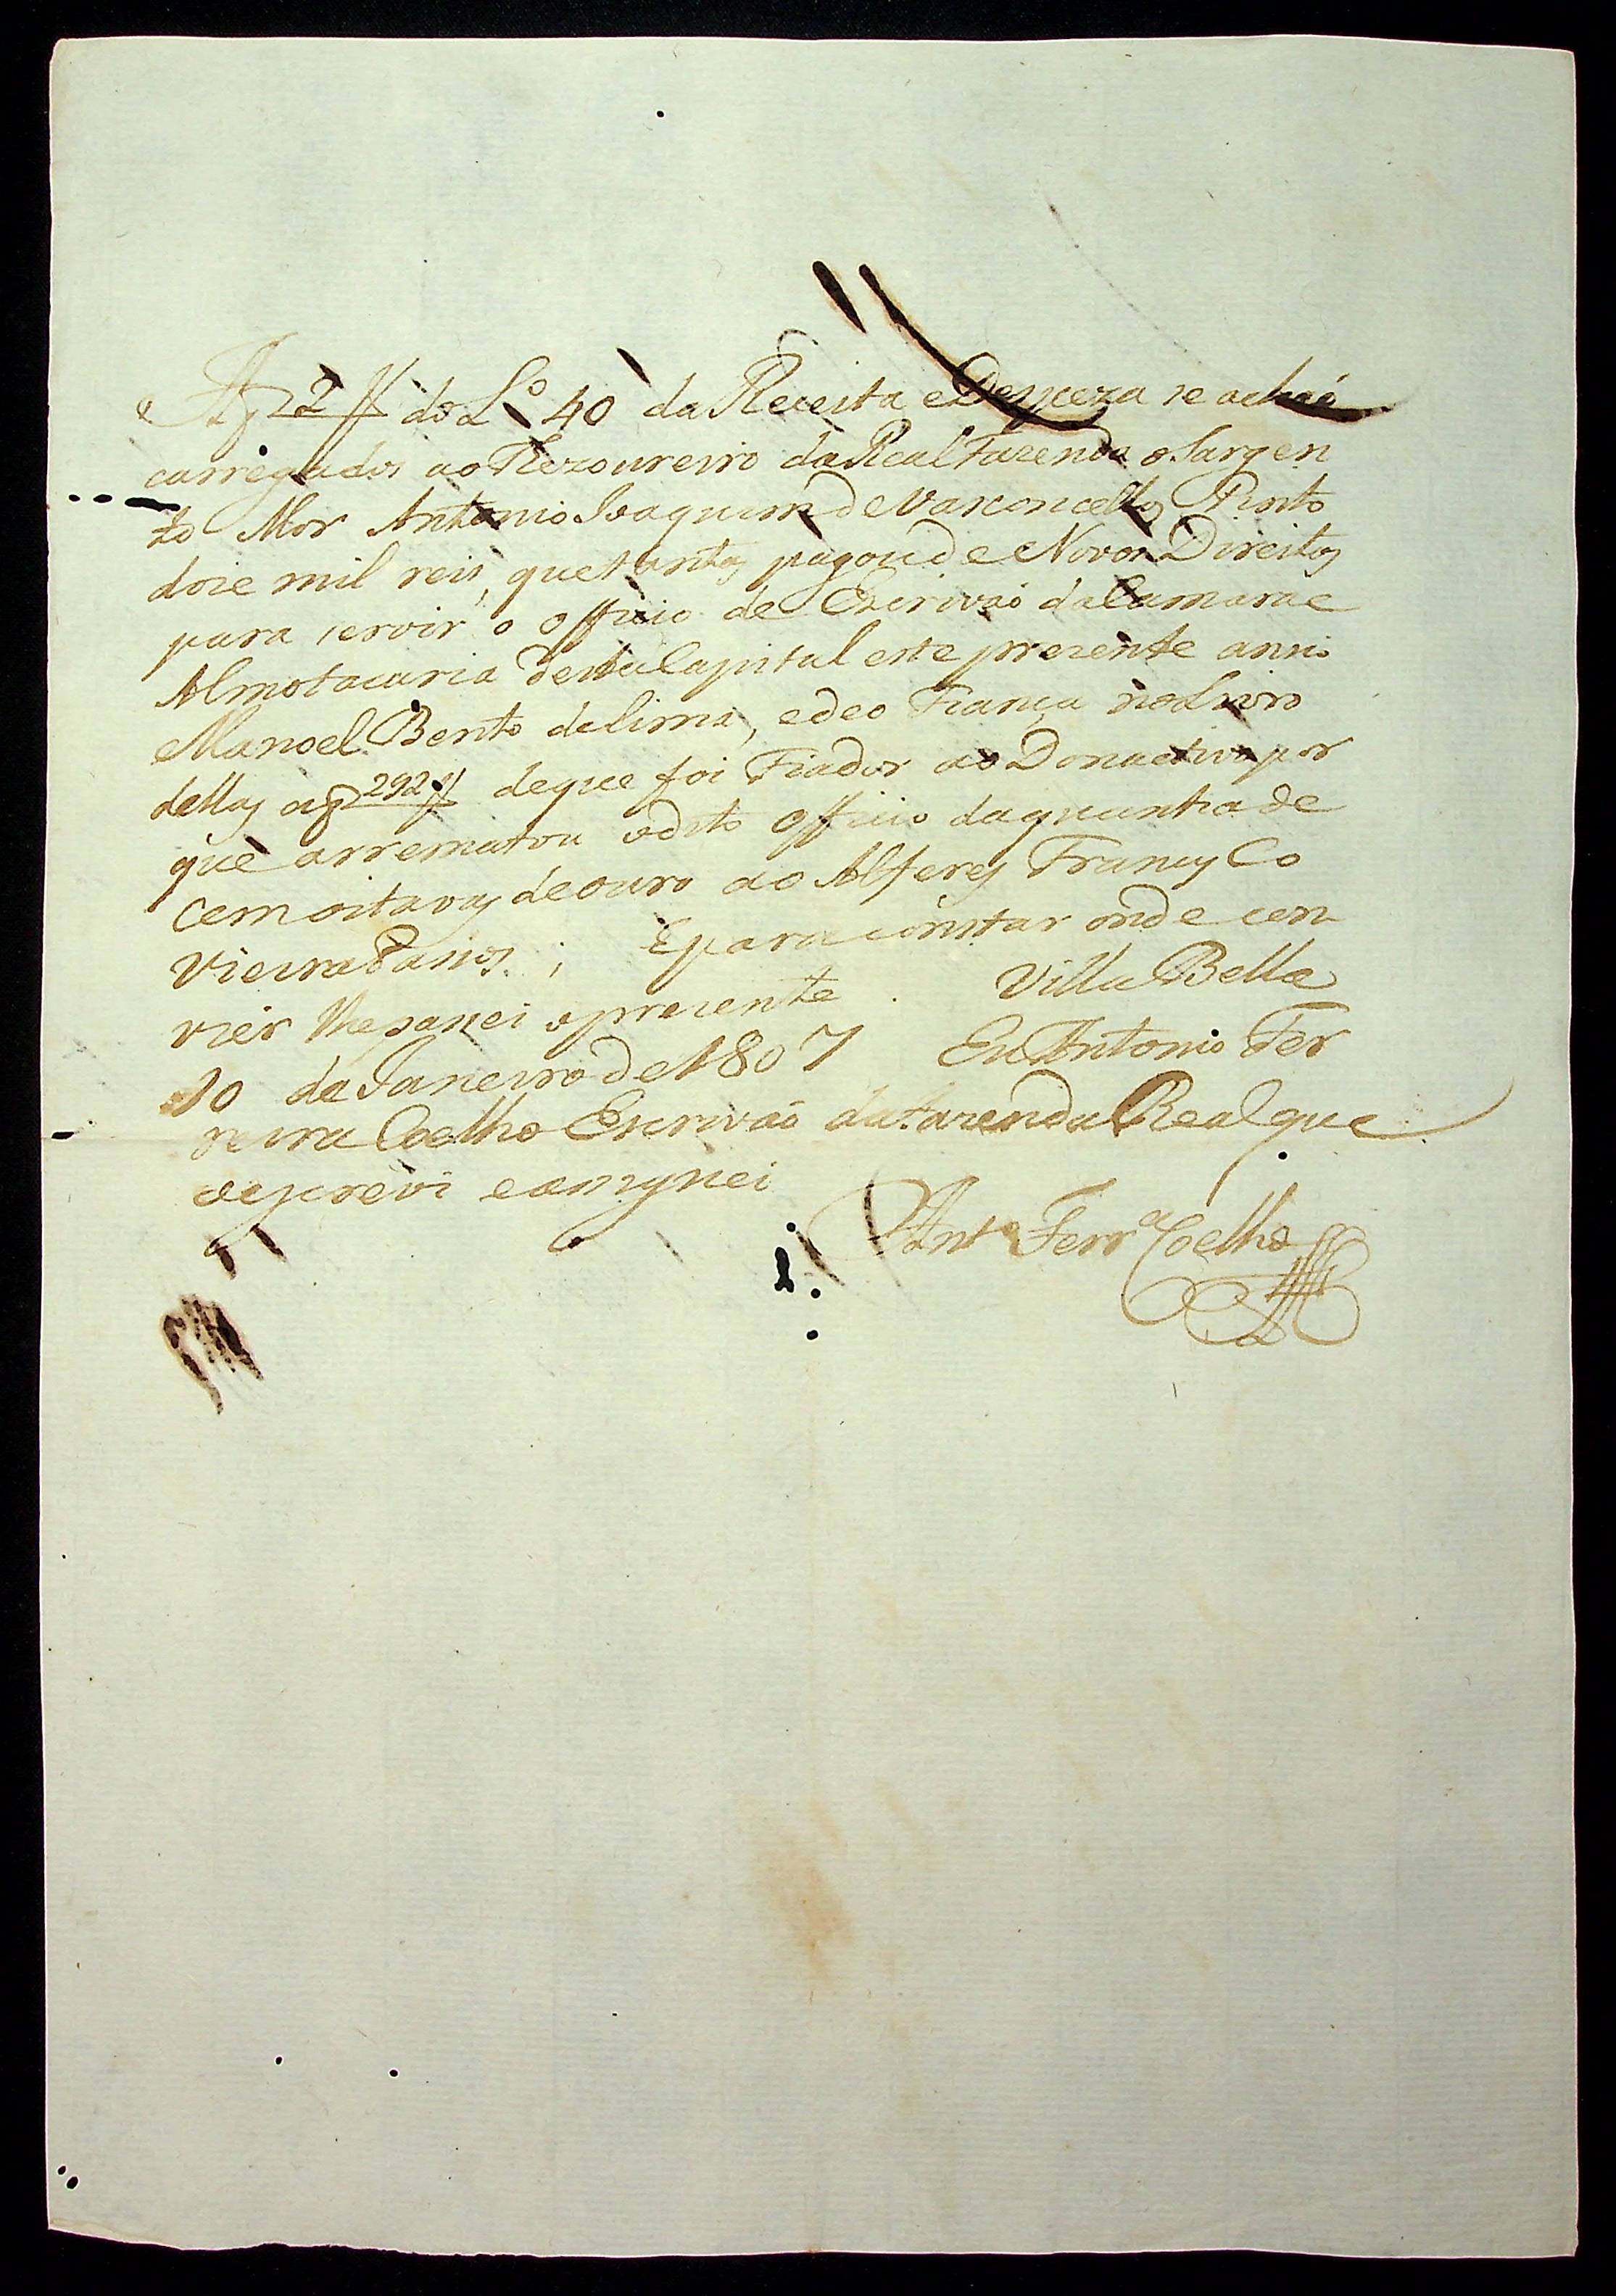 Af 2 V do L.o 40 da Receita e Despeza se achaõ
carregados ao Thezoureiro da Real Fazenda o Sargen
to Mor Antonio Joaquim de Vasconcellos Pinto
doze mil reis, que tantos pagou de Novos Direitos
para servir o officio de Escrivaõ da Camara e
Almotacaria desta Capital este prezente anno
Manoel Bento de Lima, e deo Fiança no Livro
dellas af 292 V de que foi Fiador ao Donativo por
que arrematou o dito officio da quantia de
cem oitavas de ouro ao Alferes Franc.co
Vieira Passos; E para constar onde con
vier lhe passei o prezente. Villa Bella
10 de Janeiro de 1807 Eu Antonio Fer
reira Coelho Escrivaõ da Fazenda Real que
o escrevi e asignei
Ant.o Ferr.a Coelho